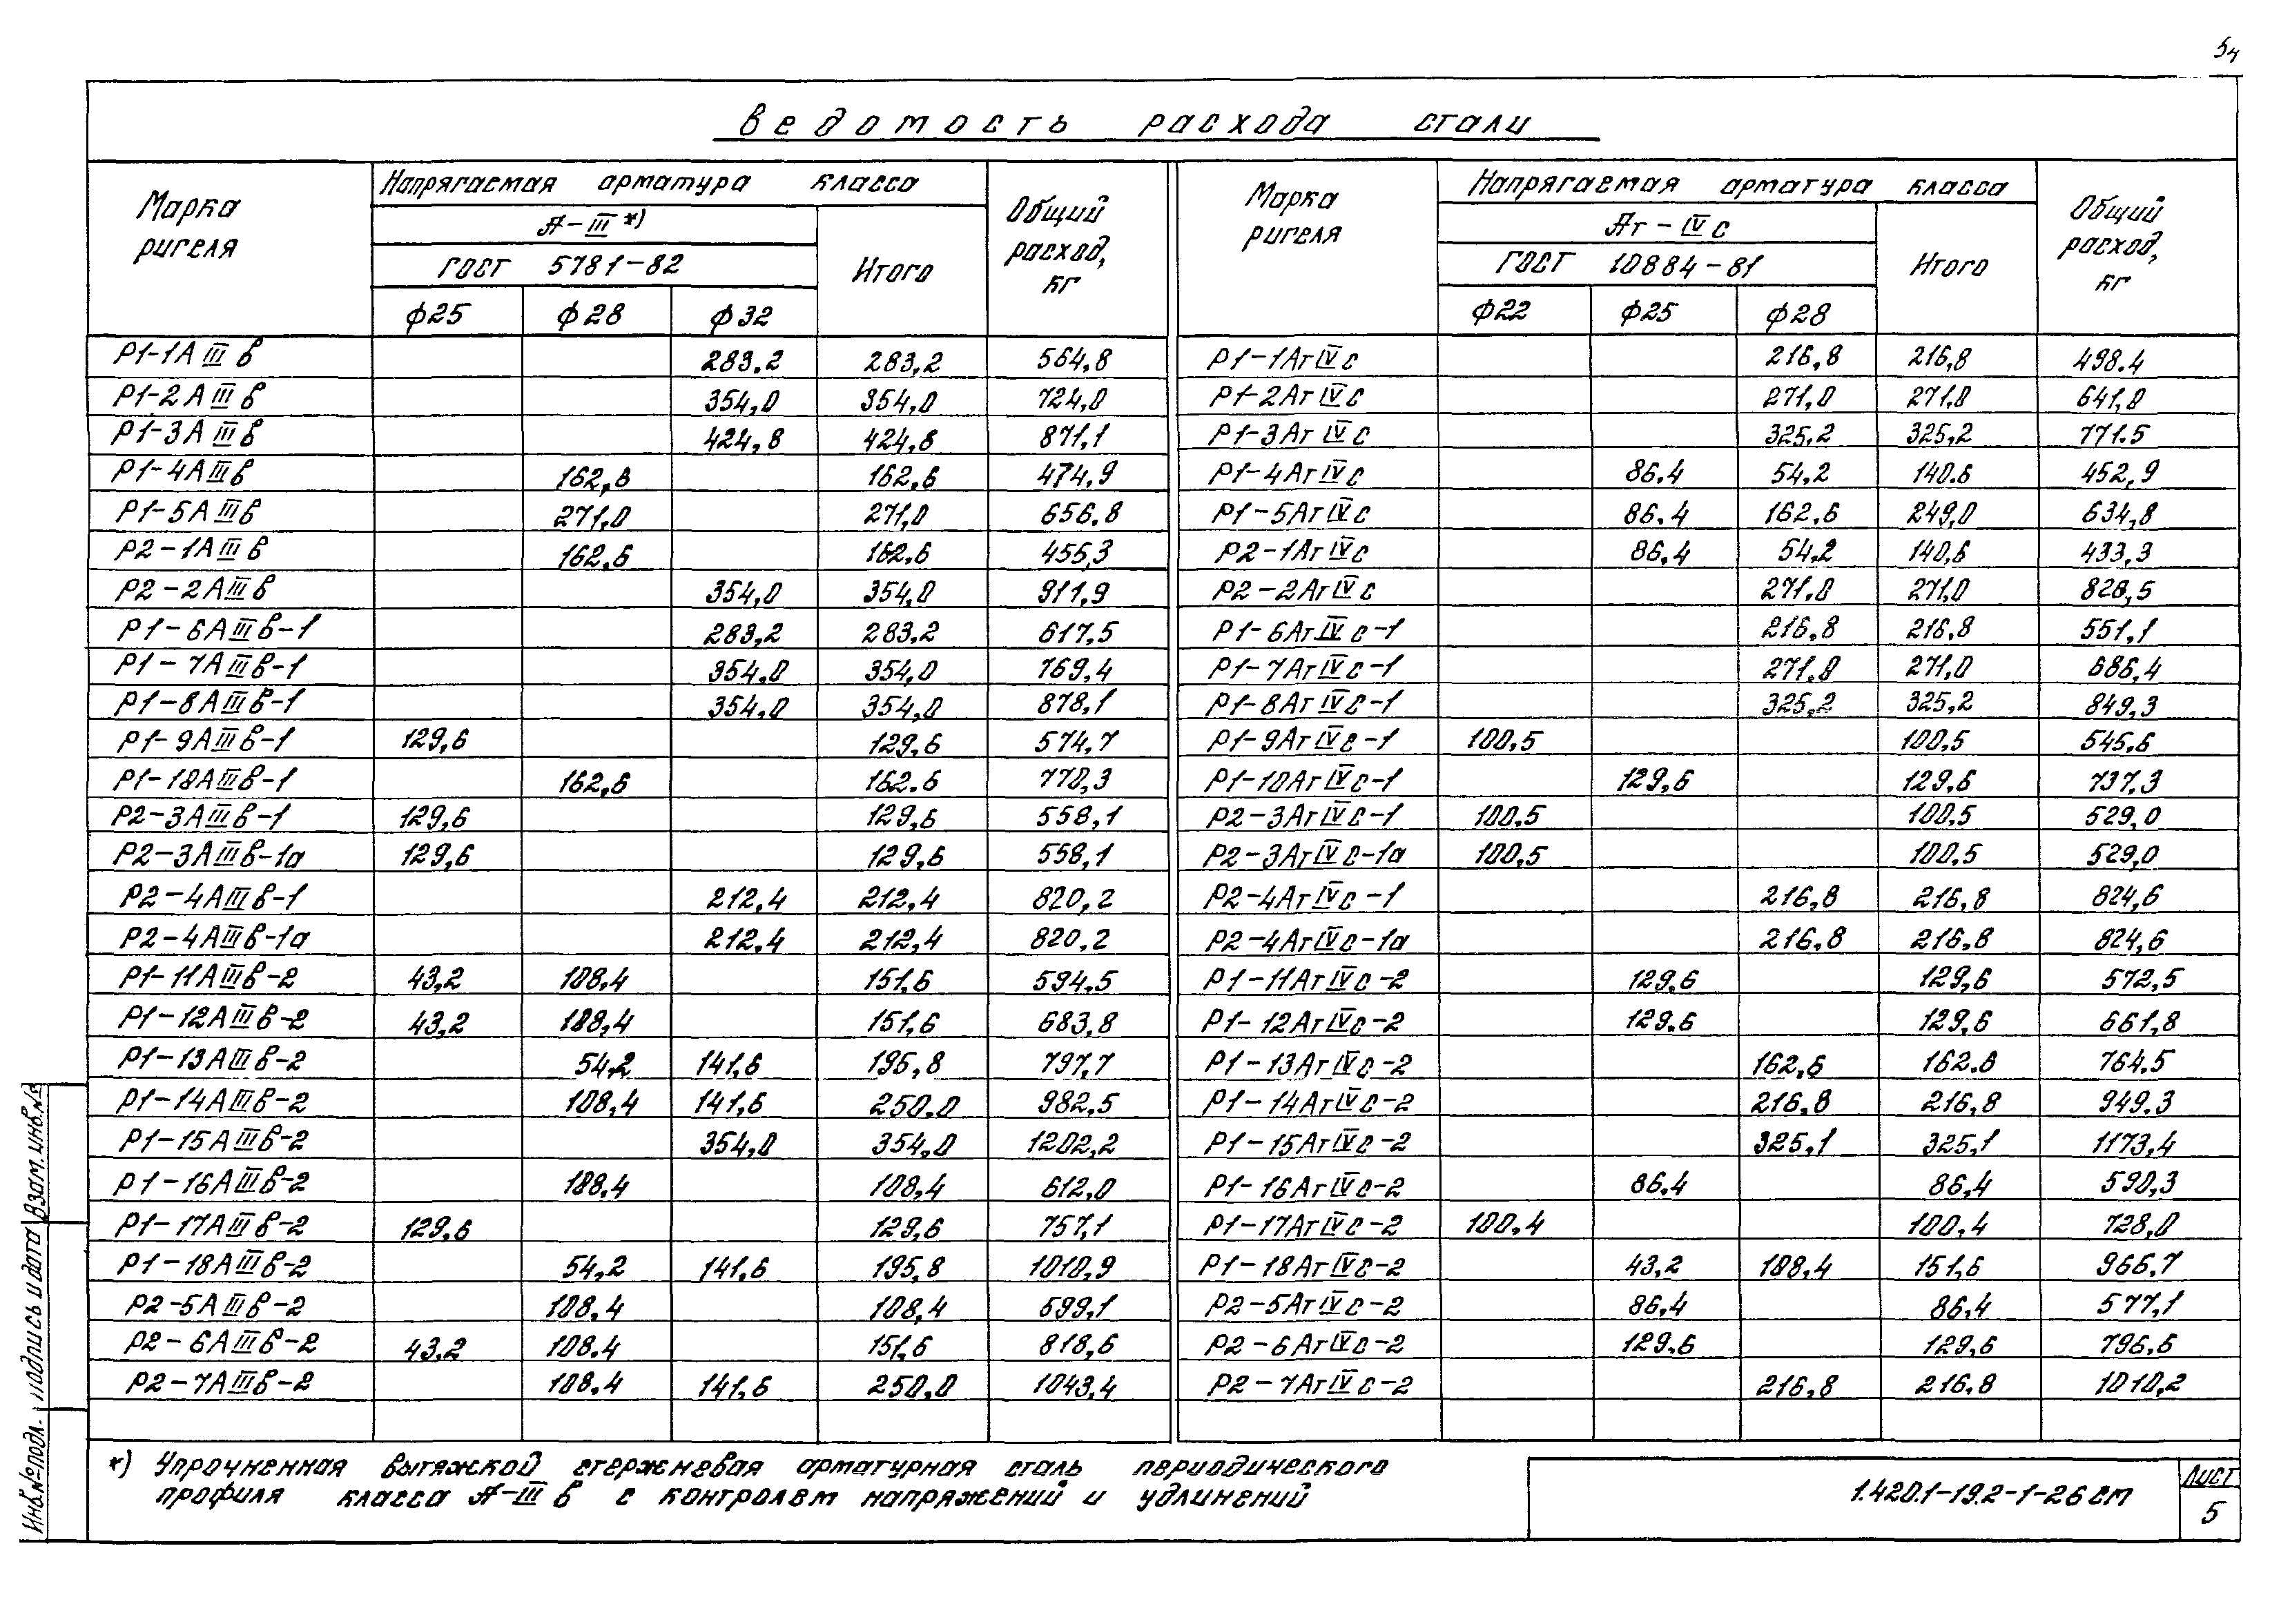 54
Ведомость расхода стали
Марка ригеля | Напрягаемая арматура класса | Общий расход, кг | Марка ригеля | Напрягаемая арматура класса | Общий расход, кг
А-III *) | Итого | Ат-IVС | Итого
ГОСТ 5781-82 | ГОСТ 10884-81
ф25 | ф28 | ф32 | ф22 | ф25 | ф28
Р1-1АIIIв 283,2 283,2 564,8 Р1-1АтIVС 216,8 216,8 498.4
Р1-2АIIIв 354,0 354,0 724,0 Р1-2АтIVС 271,0 271,0 641,0
Р1-3АIIIв 424,8 424,8 871,1 Р1-3АтIVС 325,2 325,2 771.5
Р1-4АIIIв 162,6 162,6 474,9 Р1-4АтIVС 86.4 54,2 140.6 452,9
Р1-5АIIIв 271,0 271,0 656.8 Р1-5АтIVС 86.4 162,6 249,0 634,8
Р2-1АIIIв 162,6 162,6 455,3 Р2-1АтIVС 86,4 54,2 140,6 433,3
Р2-2АIIIв 354,0 354,0 911,9 Р2-2АтIVС 271,0 271,0 828,5
Р1-6АIIIв-1 283,2 283,2 617,5 Р1-6АтIVС-1 216,8 216,8 551,1
Р1-7АIIIв-1 354,0 354,0 769,4 Р1-7АтIVС-1 271,0 271,0 686,4
Р1-8АIIIв-1 354,0 354,0 878,1 Р1-8АтIVС-1 325,2 325,2 849,3
Р1-9АIIIв-1 129,6 129,6 574,7 Р1-9АтIVС-1 100,5 100,5 545,6
Р1-10АIIIв-1 162,6 162.6 770,3 Р1-10АтIVС-1 129,6 129,6 737,3
Р2-3АIIIв-1 129,6 129,6 558,1 Р2-3АтIVС-1 100.5 100.5 529,0
Р2-3АIIIв-1а 129,6 129,6 558,1 Р2-3АтIVС-1а 100,5 100,5 529,0
Р2-4АIIIв-1 212,4 212,4 820,2 Р2-4АтIVС-1 216,8 216,8 824,6
Р2-4АIIIв-1а 212,4 212,4 820,2 Р2-4АтIVС-1а 216,8 216,8 824,6
Р1-11АIIIв-2 43,2 108,4 151,6 594,5 Р1-11АтIVС-2 129,6 129,6 572,5
Р1-12АIIIв-2 43,2 108,4 151,6 683,8 Р1-12АтIVС-2 129,6 129,6 661,8
Р1-13АIIIв-2 54,2 141,6 195,8 797,7 Р1-13АтIVС-2 162,6 162.8 764.5
Р1-14АIIIв-2 108,4 141,6 250,0 982,5 Р1-14АтIVС-2 216,8 216,8 949.3
Р1-15АIIIв-2 354,0 354,0 1202,2 Р1-15АтIVС-2 325,1 325,1 1173,4
Р1-16АIIIв-2 108,4 108,4 612,0 Р1-16АтIVС-2 86,4 86,4 590,3
Р1-17АIIIв-2 129,6 129,6 757,1 Р1-17АтIVС-2 100,4 100,4 728,0
Р1-18АIIIв-2 54,2 141,6 195,8 1010,9 Р1-18АтIVС-2 43,2 108,4 151,6 966,7
Р2-5АIIIв-2 108,4 108,4 599,1 Р2-5АтIVС-2 86,4 86,4 577,1
Р2-6АIIIв-2 43,2 108,4 151,6 818,6 Р2-6АтIVС-2 129,6 129,6 796,6
Р2-7АIIIв-2 108,4 141,6 250,0 1043,4 Р2-7АтIVС-2 216,8 216,8 1010,2
*) Упрочненная вытяжкой стержневая арматурная сталь периодического
профиля класса А-III в с контролем напряжений и удлинений
1.420.1-19.2-1-26 СМ
Лист
5
Инв.№подл. Подпись и дата Взам.инв.№